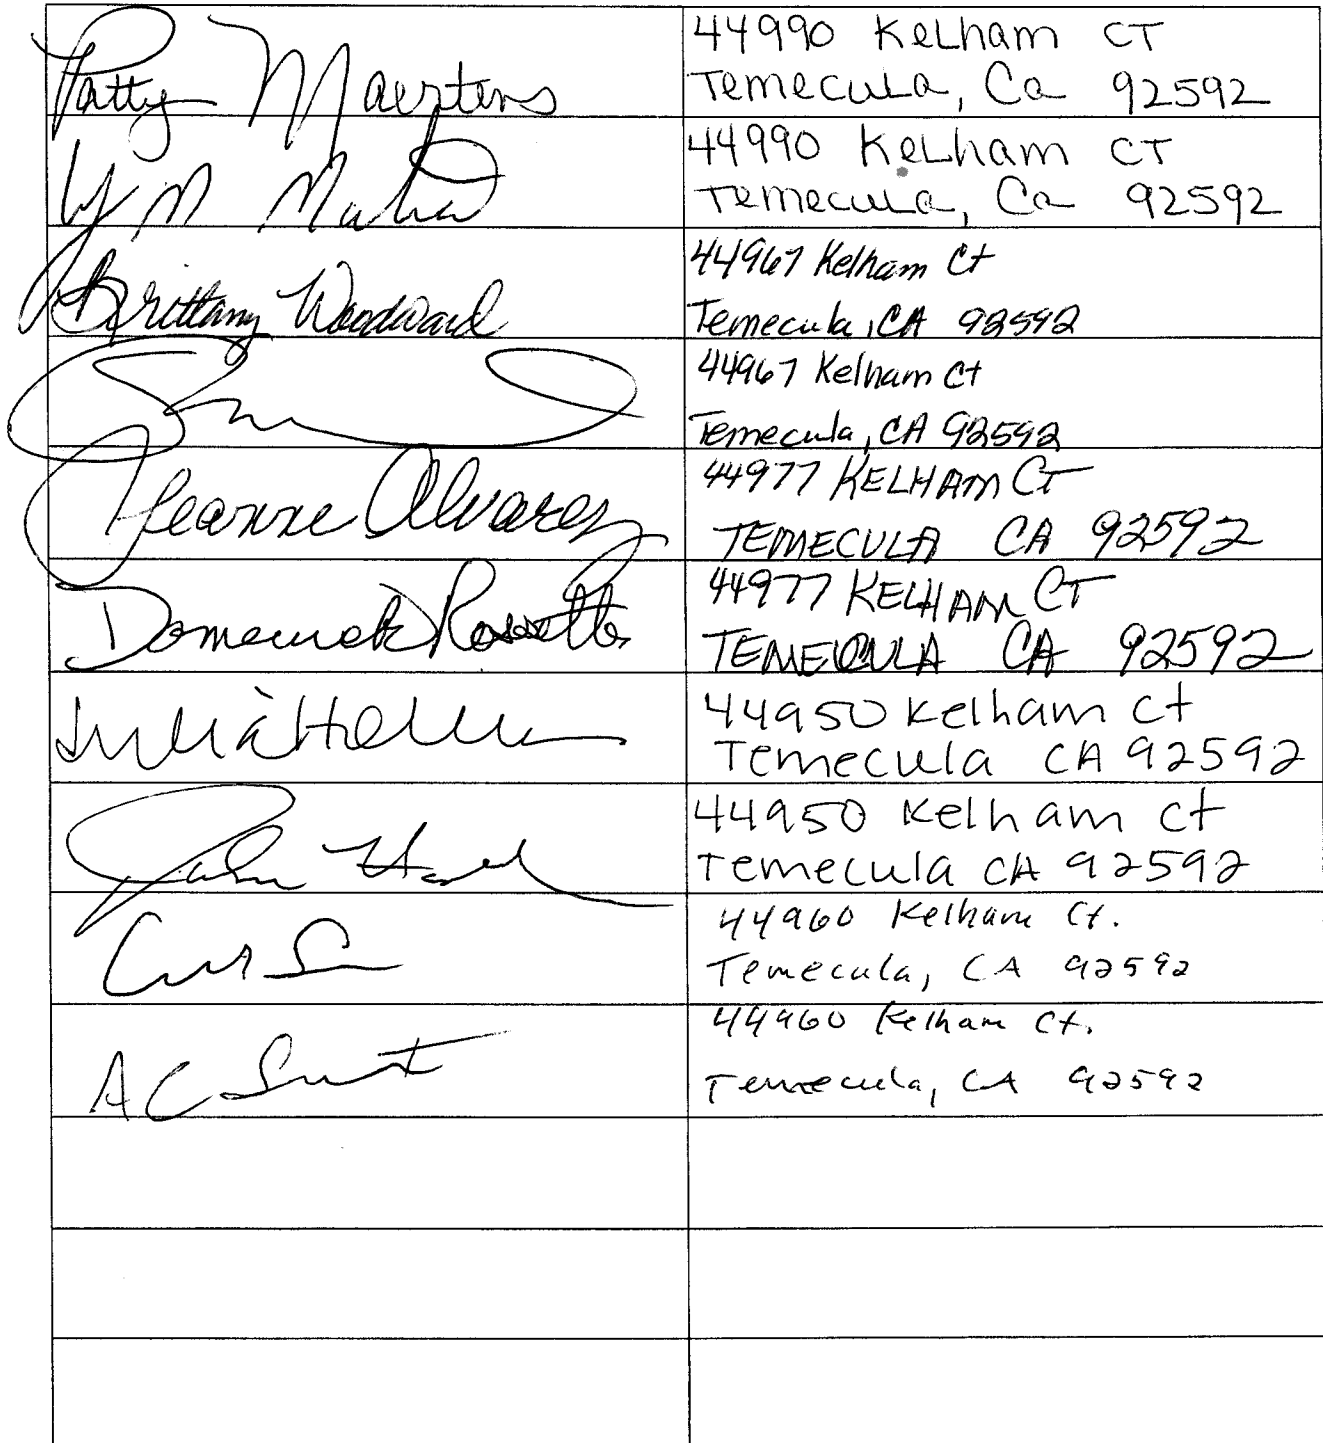 Patty Maertens
44990 Kelham CT
Temecula, Ca 92592
44990 Kelham CT
Temecula, Ca 92592
Brittany Woodward
44967 Kelham Ct
Temecula, CA 92592
44967 Kelham Ct
Temecula, CA 92592
Jeanne Alvarez
44977 KELHAM CT
TEMECULA CA 92592
Domenick Rossetto
44977 KELHAM CT
TEMECULA CA 92592
Julia
44950 Kelham Ct
Temecula CA 92592
John
44950 Kelham Ct
Temecula CA 92592
44960 Kelham Ct.
Temecula, CA 92592
A C
44960 Kelham Ct.
Temecula, CA 92592